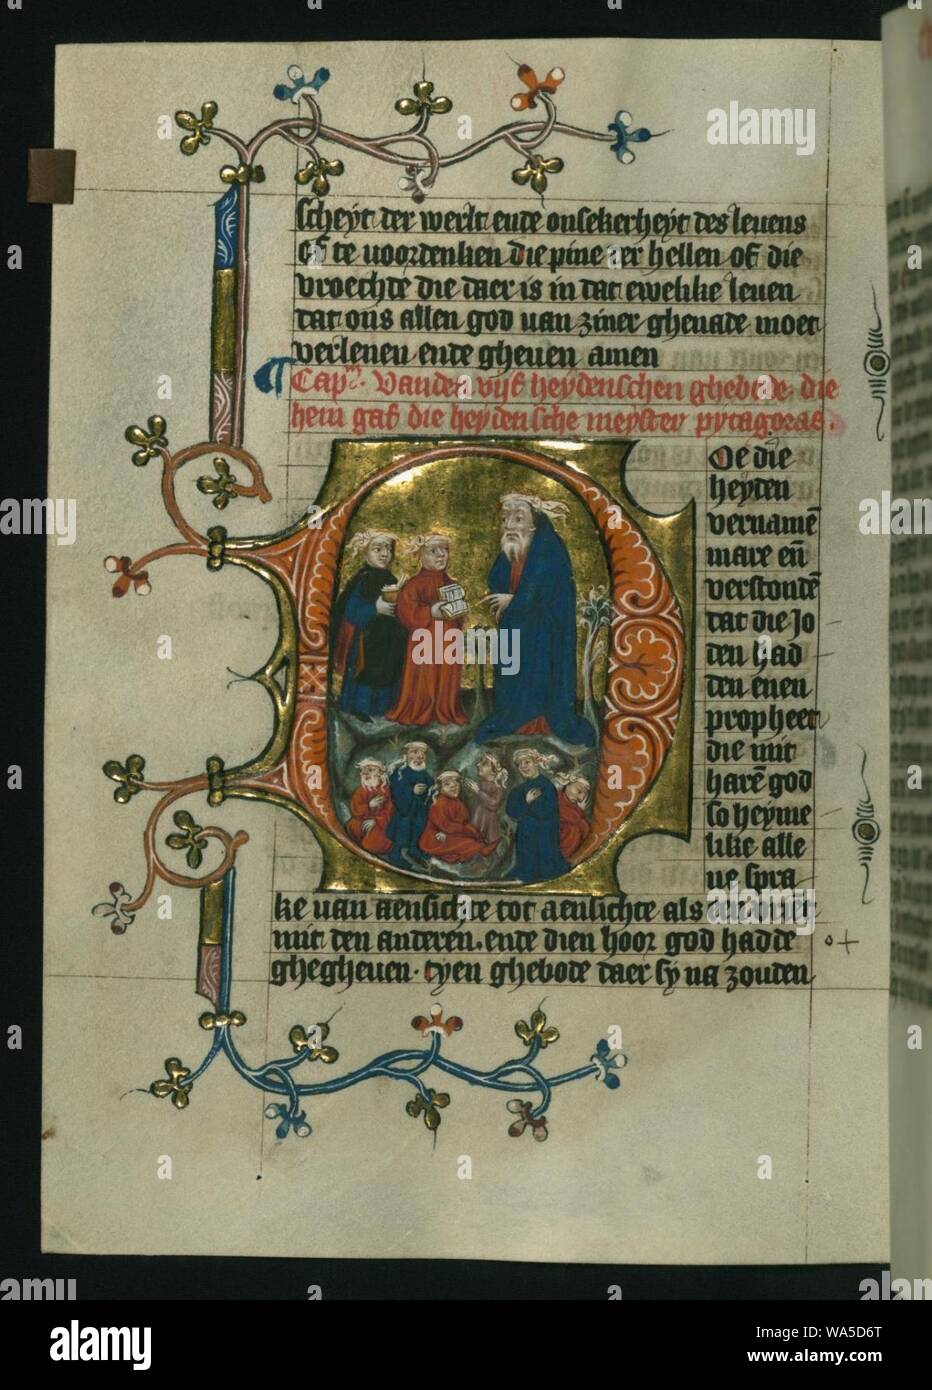 scheyt der werlt ende onsekerheyt des leuens
of te voordenken die pine der hellen of die
vroechde die daer is in dat ewelike leuen
dat ons allen god van ziner ghenade moet
verlenen ende gheuen amen
Capm. Vanden vijf heydenschen ghebode. die
hem gaf die heydensche meyster pytagoras.
Oe die
heyden
vernamē
mare eñ
verstondē
dat die Jo
den had
den enen
propheet
die mit
harē god
so heyme
like alle
ne spra
ke van aensichte tot aensichte als
mit den anderen. ende dien hoor god hadde
ghegheuen. tyen ghebode daer sy na zouden
alamy
alamy
Image ID: WA5D6T
www.alamy.com